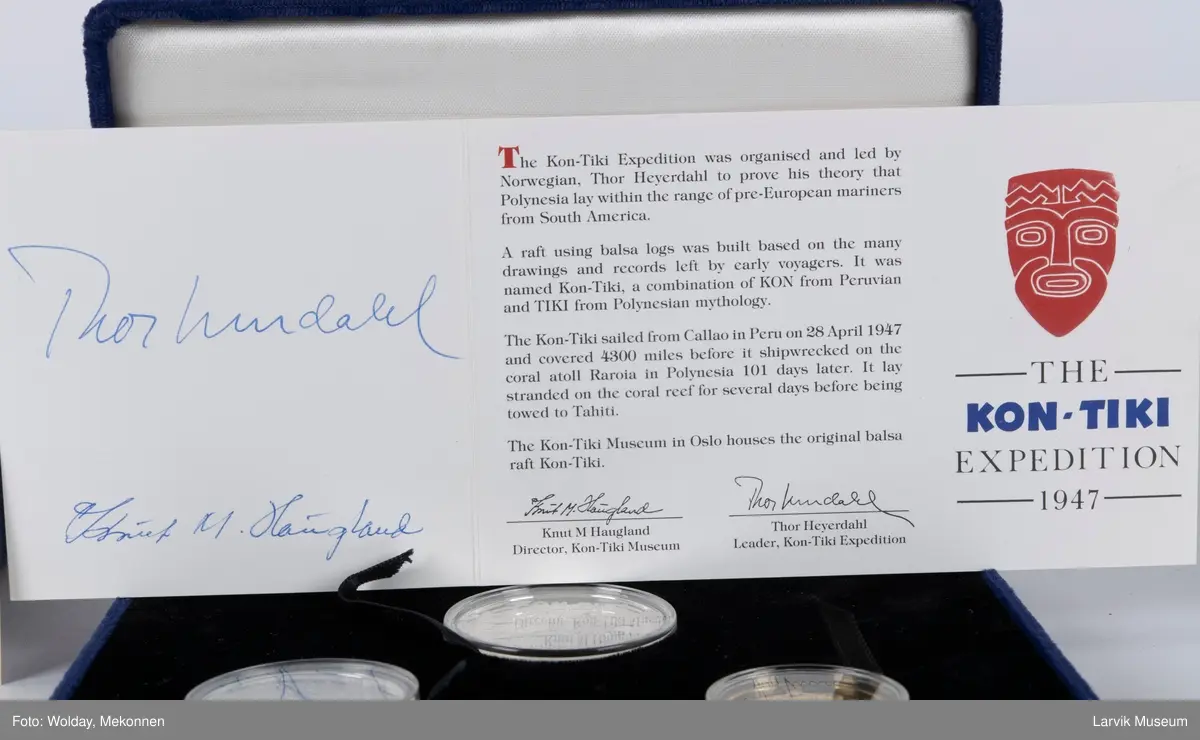 Thor Heyerdahl
Knut M. Haugland
The Kon-Tiki Expedition was organised and led by
Norwegian, Thor Heyerdahl to prove his theory that
Polynesia lay within the range of pre-European mariners
from South America.
A raft using balsa logs was built based on the many
drawings and records left by early voyagers. It was
named Kon-Tiki, a combination of KON from Peruvian
and TIKI from Polynesian mythology.
The Kon-Tiki sailed from Callao in Peru on 28 April 1947
and covered 4300 miles before it shipwrecked on the
coral atoll Raroia in Polynesia 101 days later. It lay
stranded on the coral reef for several days before being
towed to Tahiti.
The Kon-Tiki Museum in Oslo houses the original balsa
raft Kon-Tiki.
Knut M. Haugland
Knut M Haugland
Director, Kon-Tiki Museum
Thor Heyerdahl
Thor Heyerdahl
Leader, Kon-Tiki Expedition
THE
KON-TIKI
EXPEDITION
1947
Foto: Wolday, Mekonnen
Larvik Museum